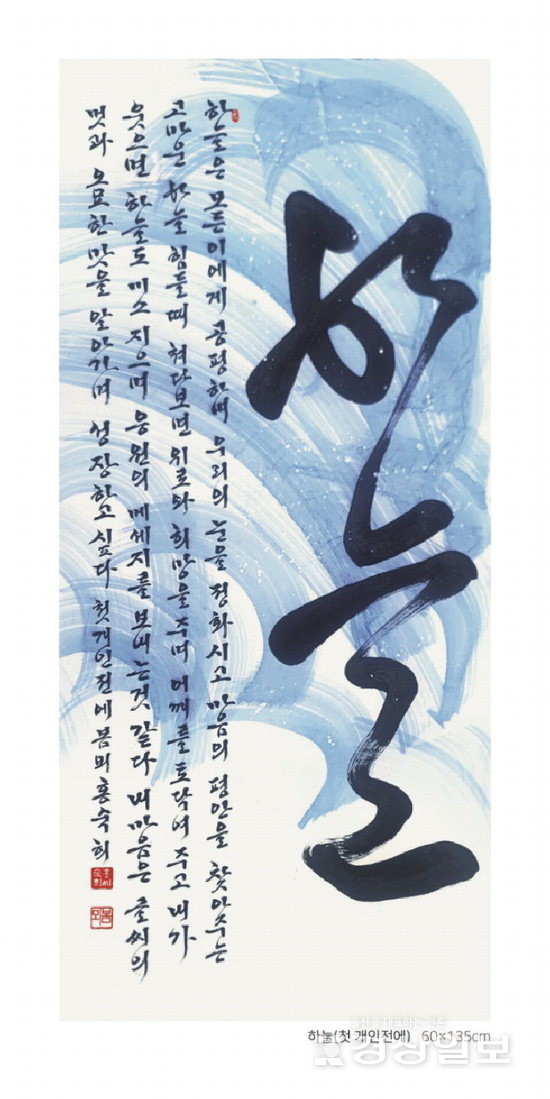 하늘
하늘은 모든이에게 공평하며 우리의 눈을 정화시고 마음의 평안을 찾아주는
고마운 하늘 힘들때 쳐다보면 위로와 희망을 주며 어깨를 토닥여 주고 내가
웃으면 하늘도 미소 지으며 응원의 메세지를 보내는것 같다 내 마음은 글씨의
멋과 오묘한 맛을 알아가며 성장하고 싶다 첫개인전에 봄뫼 홍숙희
하늘(첫 개인전에) 60×135cm
경상일보